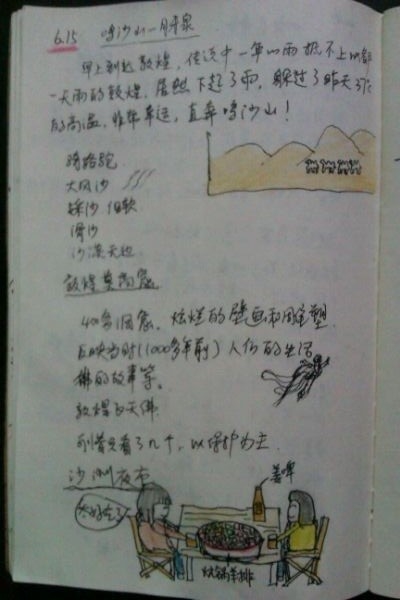 6.15 鸣沙山—月牙泉
早上到达敦煌，传说中一年的雨抵不上成都
一天雨的敦煌，居然下起了雨，躲过了昨天37℃
的高温，非常幸运，直奔鸣沙山！
骑骆驼
大风沙
踩沙 细软
滑沙
沙漠天边
敦煌莫高窟
400多洞窟，炫烂的壁画和雕塑
反映当时(1000多年前)人们的生活
佛的故事等。
敦煌飞天佛
只着看了几个，以保护为主
沙洲夜市
姜啤
太好吃了
炕锅羊排